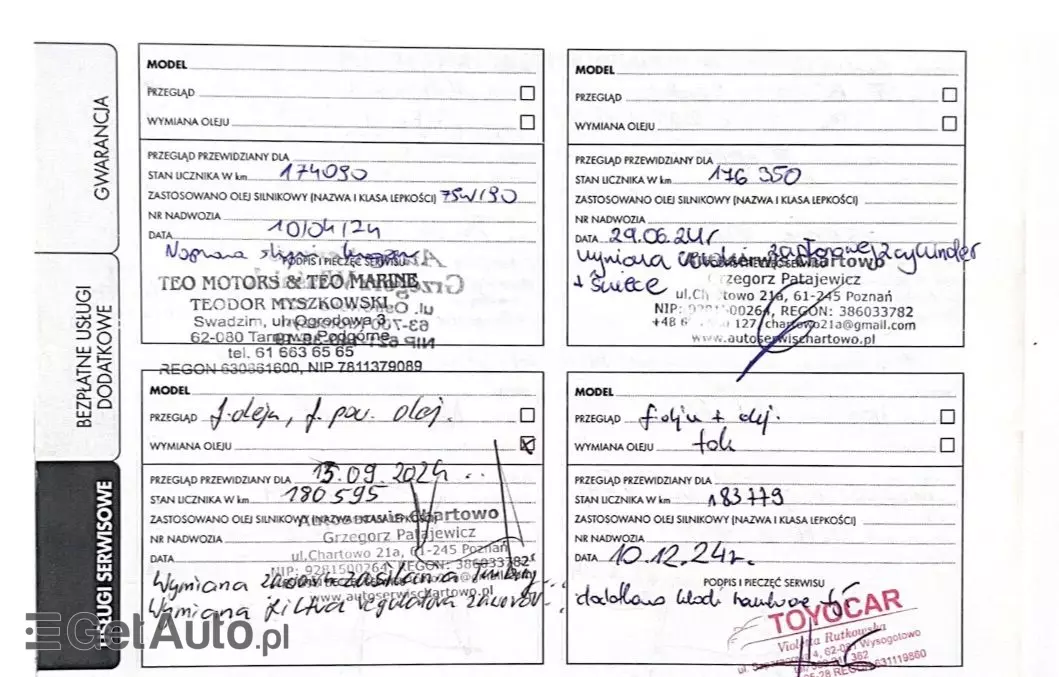 GWARANCJA
BEZPŁATNE USŁUGI
DODATKOWE
USŁUGI SERWISOWE
MODEL
PRZEGLĄD
WYMIANA OLEJU
PRZEGLĄD PRZEWIDZIANY DLA
STAN LICZNIKA W km 174090
ZASTOSOWANO OLEJ SILNIKOWY (NAZWA I KLASA LEPKOŚCI) 75W/90
NR NADWOZIA
DATA 10/04/24
Naprawa
PODPIS I PIECZĘĆ SERWISU
TEO MOTORS & TEO MARINE
TEODOR MYSZKOWSKI
Swadzim, ul. Ogrodowa 3
62-080 Tarnowo Podgórne
tel. 61 663 65 65
REGON 630861600, NIP 7811379089
MODEL
PRZEGLĄD
WYMIANA OLEJU
PRZEGLĄD PRZEWIDZIANY DLA
STAN LICZNIKA W km 176 350
ZASTOSOWANO OLEJ SILNIKOWY (NAZWA I KLASA LEPKOŚCI)
NR NADWOZIA
DATA 29.06.24r
wymiana cewki zapłonowej 2 cylinder
+ świece
Autoserwis Chartowo
Grzegorz Patajewicz
ul.Chartowo 21a, 61-245 Poznań
REGON: 386033782
127/chartowo21a@gmail.com
www.autoserwischartowo.pl
MODEL
PRZEGLĄD f. oleju, f. pow. olej.
WYMIANA OLEJU
PRZEGLĄD PRZEWIDZIANY DLA 13.09.2024
STAN LICZNIKA W km 180 595
ZASTOSOWANO OLEJ SILNIKOWY (NAZWA I KLASA LEPKOŚCI)
NR NADWOZIA
DATA
Autoserwis Chartowo
Grzegorz Patajewicz
ul.Chartowo 21a, 61-245 Poznań
NIP: 9281500264, REGON: 386033782
www.autoserwischartowo.pl
Wymiana zaworu zasilania turbiny
Wymiana filtra regulatora zaworów
MODEL
PRZEGLĄD f oleju + olej.
WYMIANA OLEJU tak
PRZEGLĄD PRZEWIDZIANY DLA
STAN LICZNIKA W km 183779
ZASTOSOWANO OLEJ SILNIKOWY (NAZWA I KLASA LEPKOŚCI)
NR NADWOZIA
DATA 10.12.24r.
PODPIS I PIECZĘĆ SERWISU
dodatkowo klocki hamulcowe
TOYOCAR
Violetta Rutkowska
Wysogotowo
REGON 631119860
GetAuto.pl